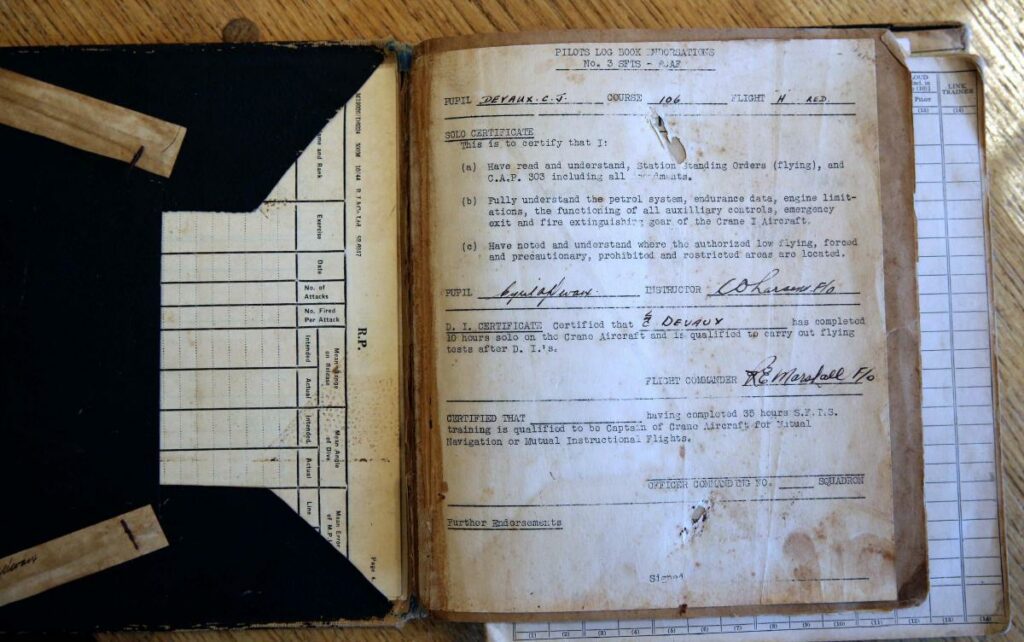 PILOTS LOG BOOK ENDORSATIONS
No. 3 SFTS - RCAF
PUPIL DEVAUX. C.J. COURSE 106 FLIGHT H RED
SOLO CERTIFICATE
This is to certify that I:
(a) Have read and understand, Station Standing Orders (flying), and
C.A.P. 303 including all
(b) Fully understand the petrol system, endurance data, engine limit-
ations, the functioning of all auxilliary controls, emergency
exit and fire extinguishing gear of the Crane I Aircraft.
(c) Have noted and understand where the authorized low flying, forced
and precautionary, prohibited and restricted areas are located.
PUPIL INSTRUCTOR F/o
D. I. CERTIFICATE Certified that DEVAUX has completed
10 hours solo on the Crane Aircraft and is qualified to carry out flying
tests after D. I.'s.
FLIGHT COMMANDER R.E. Marshall F/o
CERTIFIED THAT having completed 35 hours S.F.T.S.
training is qualified to be Captain of Crane Aircraft for Mutual
Navigation or Mutual Instructional Flights.
OFFICER COMMANDING NO. SQUADRON
Further Endorsements
Signed
R.P.
Name and Rank
Exercise
Date
No. of
Attacks
No. Fired
Per Attack
Mean Range
on Release
Intended
Actual
Mean Angle
of Dive
Intended
Actual
Mean Error
of M.P.I.
Line
Page 4.
LINK
TRAINER
Pilot
(13)
(14)
(1) (2) (3) (4) (5) (6) (7) (8) (9) (10) (11) (12) (13) (14)